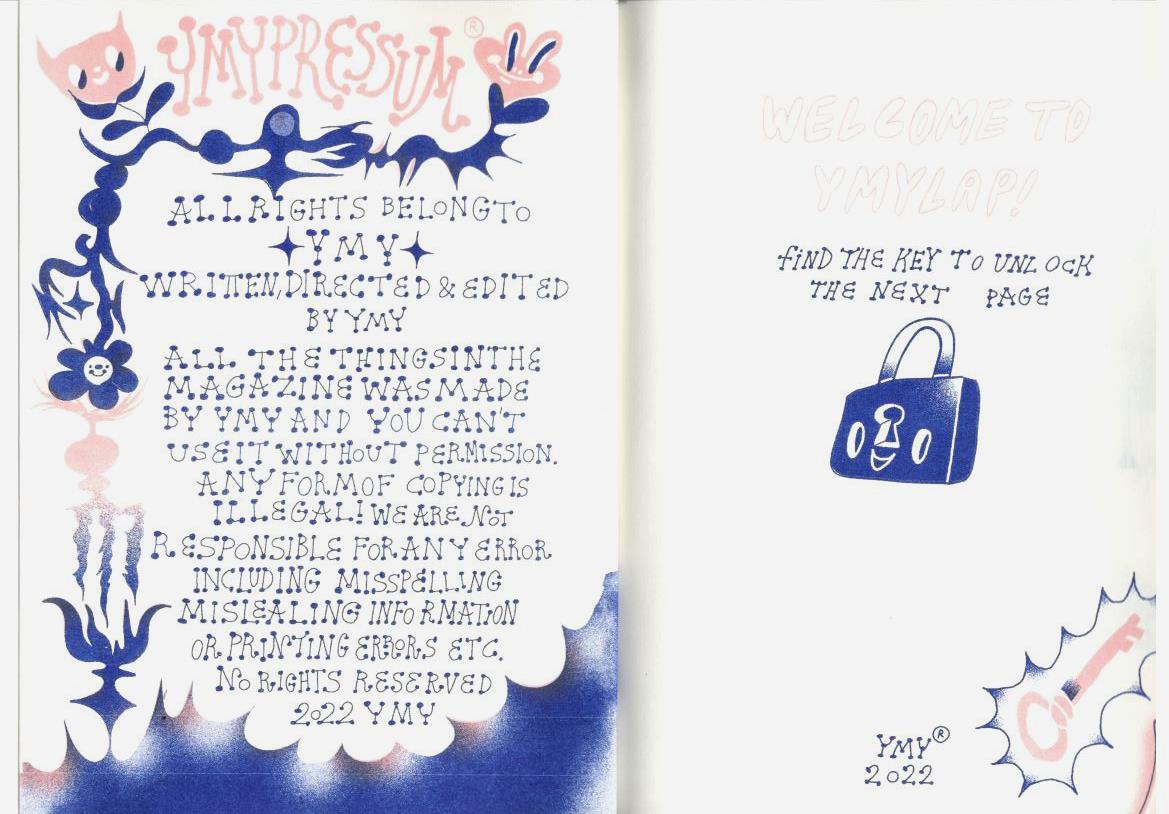 YMYPRESSUM®
ALL RIGHTS BELONG TO
YMY
WRITTEN, DIRECTED & EDITED
BY YMY
ALL THE THINGS IN THE
MAGAZINE WAS MADE
BY YMY AND YOU CAN'T
USE IT WITHOUT PERMISSION.
ANY FORM OF COPYING IS
ILLEGAL! WE ARE NOT
RESPONSIBLE FOR ANY ERROR
INCLUDING MISSPELLING
MISLEALING INFORMATION
OR PRINTING ERRORS ETC.
NO RIGHTS RESERVED
2022 YMY
WELCOME TO
YMYLAP!
FIND THE KEY TO UNLOCK
THE NEXT PAGE
YMY®
2022